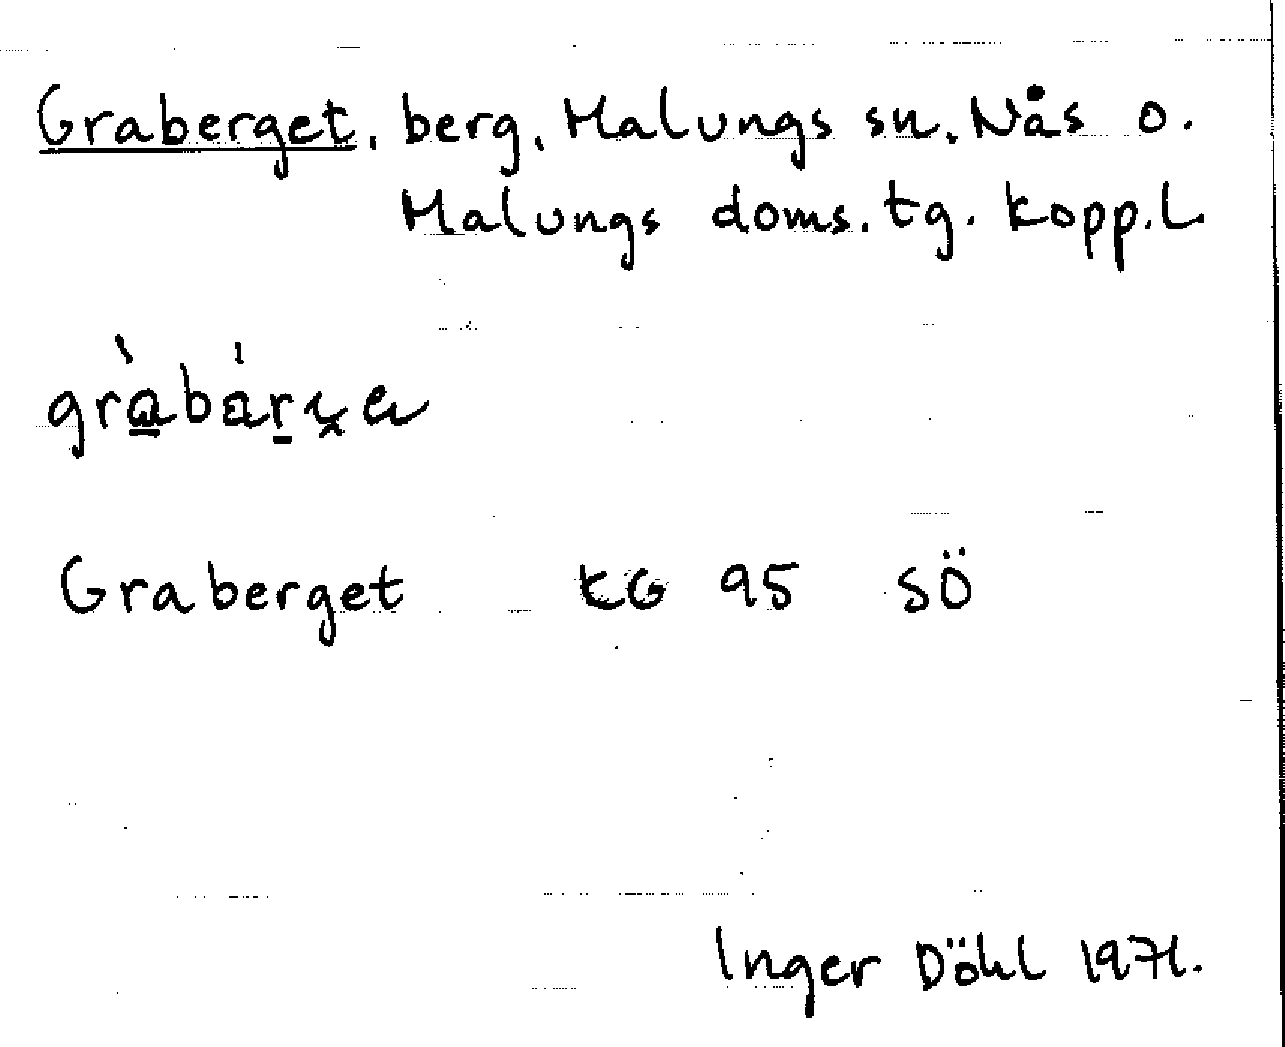 Graberget, berg, Malungs sn. Nås o.
Malungs doms. tg. Kopp.L
Graberget KG 95 SÖ
Inger Döhl 1971.